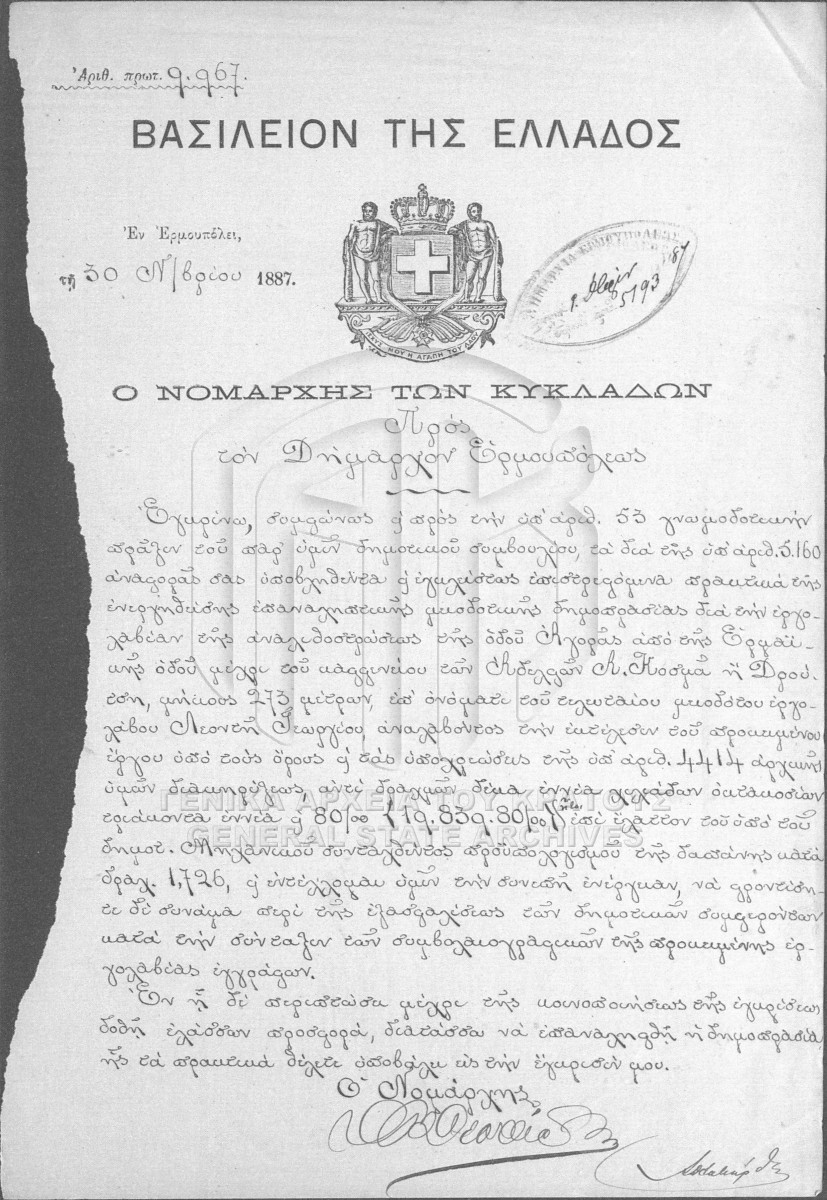 Ἀριθ. πρωτ. 9.967.
ΒΑΣΙΛΕΙΟΝ ΤΗΣ ΕΛΛΑΔΟΣ
Ἐν Ἑρμουπόλει,
τῇ 30 Ν/βρίου 1887.
ΙΣΧΥΣ ΜΟΥ Η ΑΓΑΠΗ ΤΟΥ ΛΑΟΥ
5193
87
Ο ΝΟΜΑΡΧΗΣ ΤΩΝ ΚΥΚΛΑΔΩΝ
Πρὸς
τὸν Δήμαρχον Ἑρμουπόλεως
Ἐγκρίνω, συμφώνως ϗ πρὸς τὴν ὑπ' ἀριθ. 53 γνωμοδοτικὴν
πρᾶξιν τοῦ παρ' ὑμῖν δημοτικοῦ συμβουλίου, τὰ διὰ τῆς ὑπ' ἀριθ. 5.160
ἀναφορᾶς σας ὑποβληθέντα ϗ ἐγκλείστως ἐπιστρεφόμενα πρακτικὰ τῆς
ἐνεργηθείσης ἐπαναληπτικῆς μειοδοτικῆς δημοπρασίας διὰ τὴν ἐργο-
λαβίαν τῆς ἀναλιθοστρώσεως τῆς ὁδοῦ Ἀγορᾶς ἀπὸ τῆς Ἑρμαϊ-
κῆς ὁδοῦ μέχρι τοῦ καφφενείου τῶν Ἀδελφῶν Α. Κοσμᾶ ἢ Δρού-
τση, μήκους 273 μέτρων, ἐπ' ὀνόματι τοῦ τελευταίου μειοδότου ἐργο-
λάβου Λεοντῆ Γεωργίου, ἀναλαβόντος τὴν ἐκτέλεσιν τοῦ προκειμένου
ἔργου ὑπὸ τοὺς ὅρους ϗ τὰς ὑποχρεώσεις τῆς ὑπ' ἀριθ. 4414 ἀρχικῆς
ὑμῶν διακηρύξεως, ἀντὶ δραχμῶν δέκα ἐννέα χιλιάδων ὀκτακοσίων
τριάκοντα ἐννέα ϗ 80/00 (19.839.80/00) ἐπὶ ἔλαττον τοῦ ὑπὸ τοῦ
δημοτ. Μηχανικοῦ συνταχθέντος προϋπολογισμοῦ τῆς δαπάνης κατὰ
δραχ. 1,726, ϗ ἐντέλλομαι ὑμῖν τὴν συνεπῆ ἐνέργειαν, νὰ φροντίση-
τε δὲ συνάμα περὶ τῆς ἐξασφαλίσεως τῶν δημοτικῶν συμφερόντων
κατὰ τὴν σύνταξιν τῶν συμβολαιογραφικῶν τῆς προκειμένης ἐρ-
γολαβίας ἐγγράφων.
Ἐν ᾗ δὲ περιπτώσει μέχρι τῆς κοινοποιήσεως τῆς ἐγκρίσεως
δοθῇ ἐλάσσων προσφορά, διατάσσω νὰ ἐπαναληφθῇ ἡ δημοπρασία,
ἧς τὰ πρακτικὰ θέλετε ὑποβάλει εἰς τὴν ἔγκρισίν μου.
Ὁ Νομάρχης
ΓΕΝΙΚΑ ΑΡΧΕΙΑ ΤΟΥ ΚΡΑΤΟΥΣ
GENERAL STATE ARCHIVES